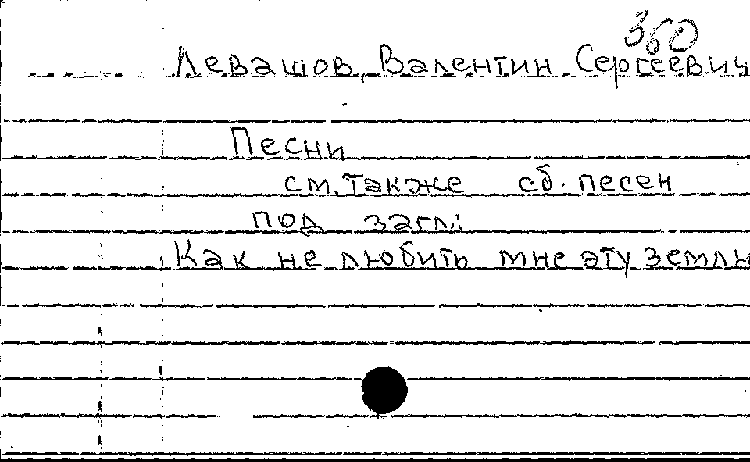 360
Левашов, Валентин Сергеевич
Песни
см. также сб. песен
под загл.:
Как не любить мне эту землю